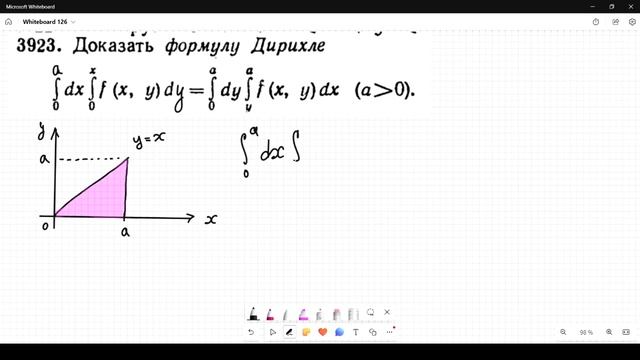 Microsoft Whiteboard
Whiteboard 126
3923. Доказать формулу Дирихле
∫₀ᵃ dx ∫₀ˣ f (x, y) dy = ∫₀ᵃ dy ∫ᵧᵃ f (x, y) dx (a>0).
y
y=x
a
∫₀ᵃ dx ∫
0
a
x
98 %